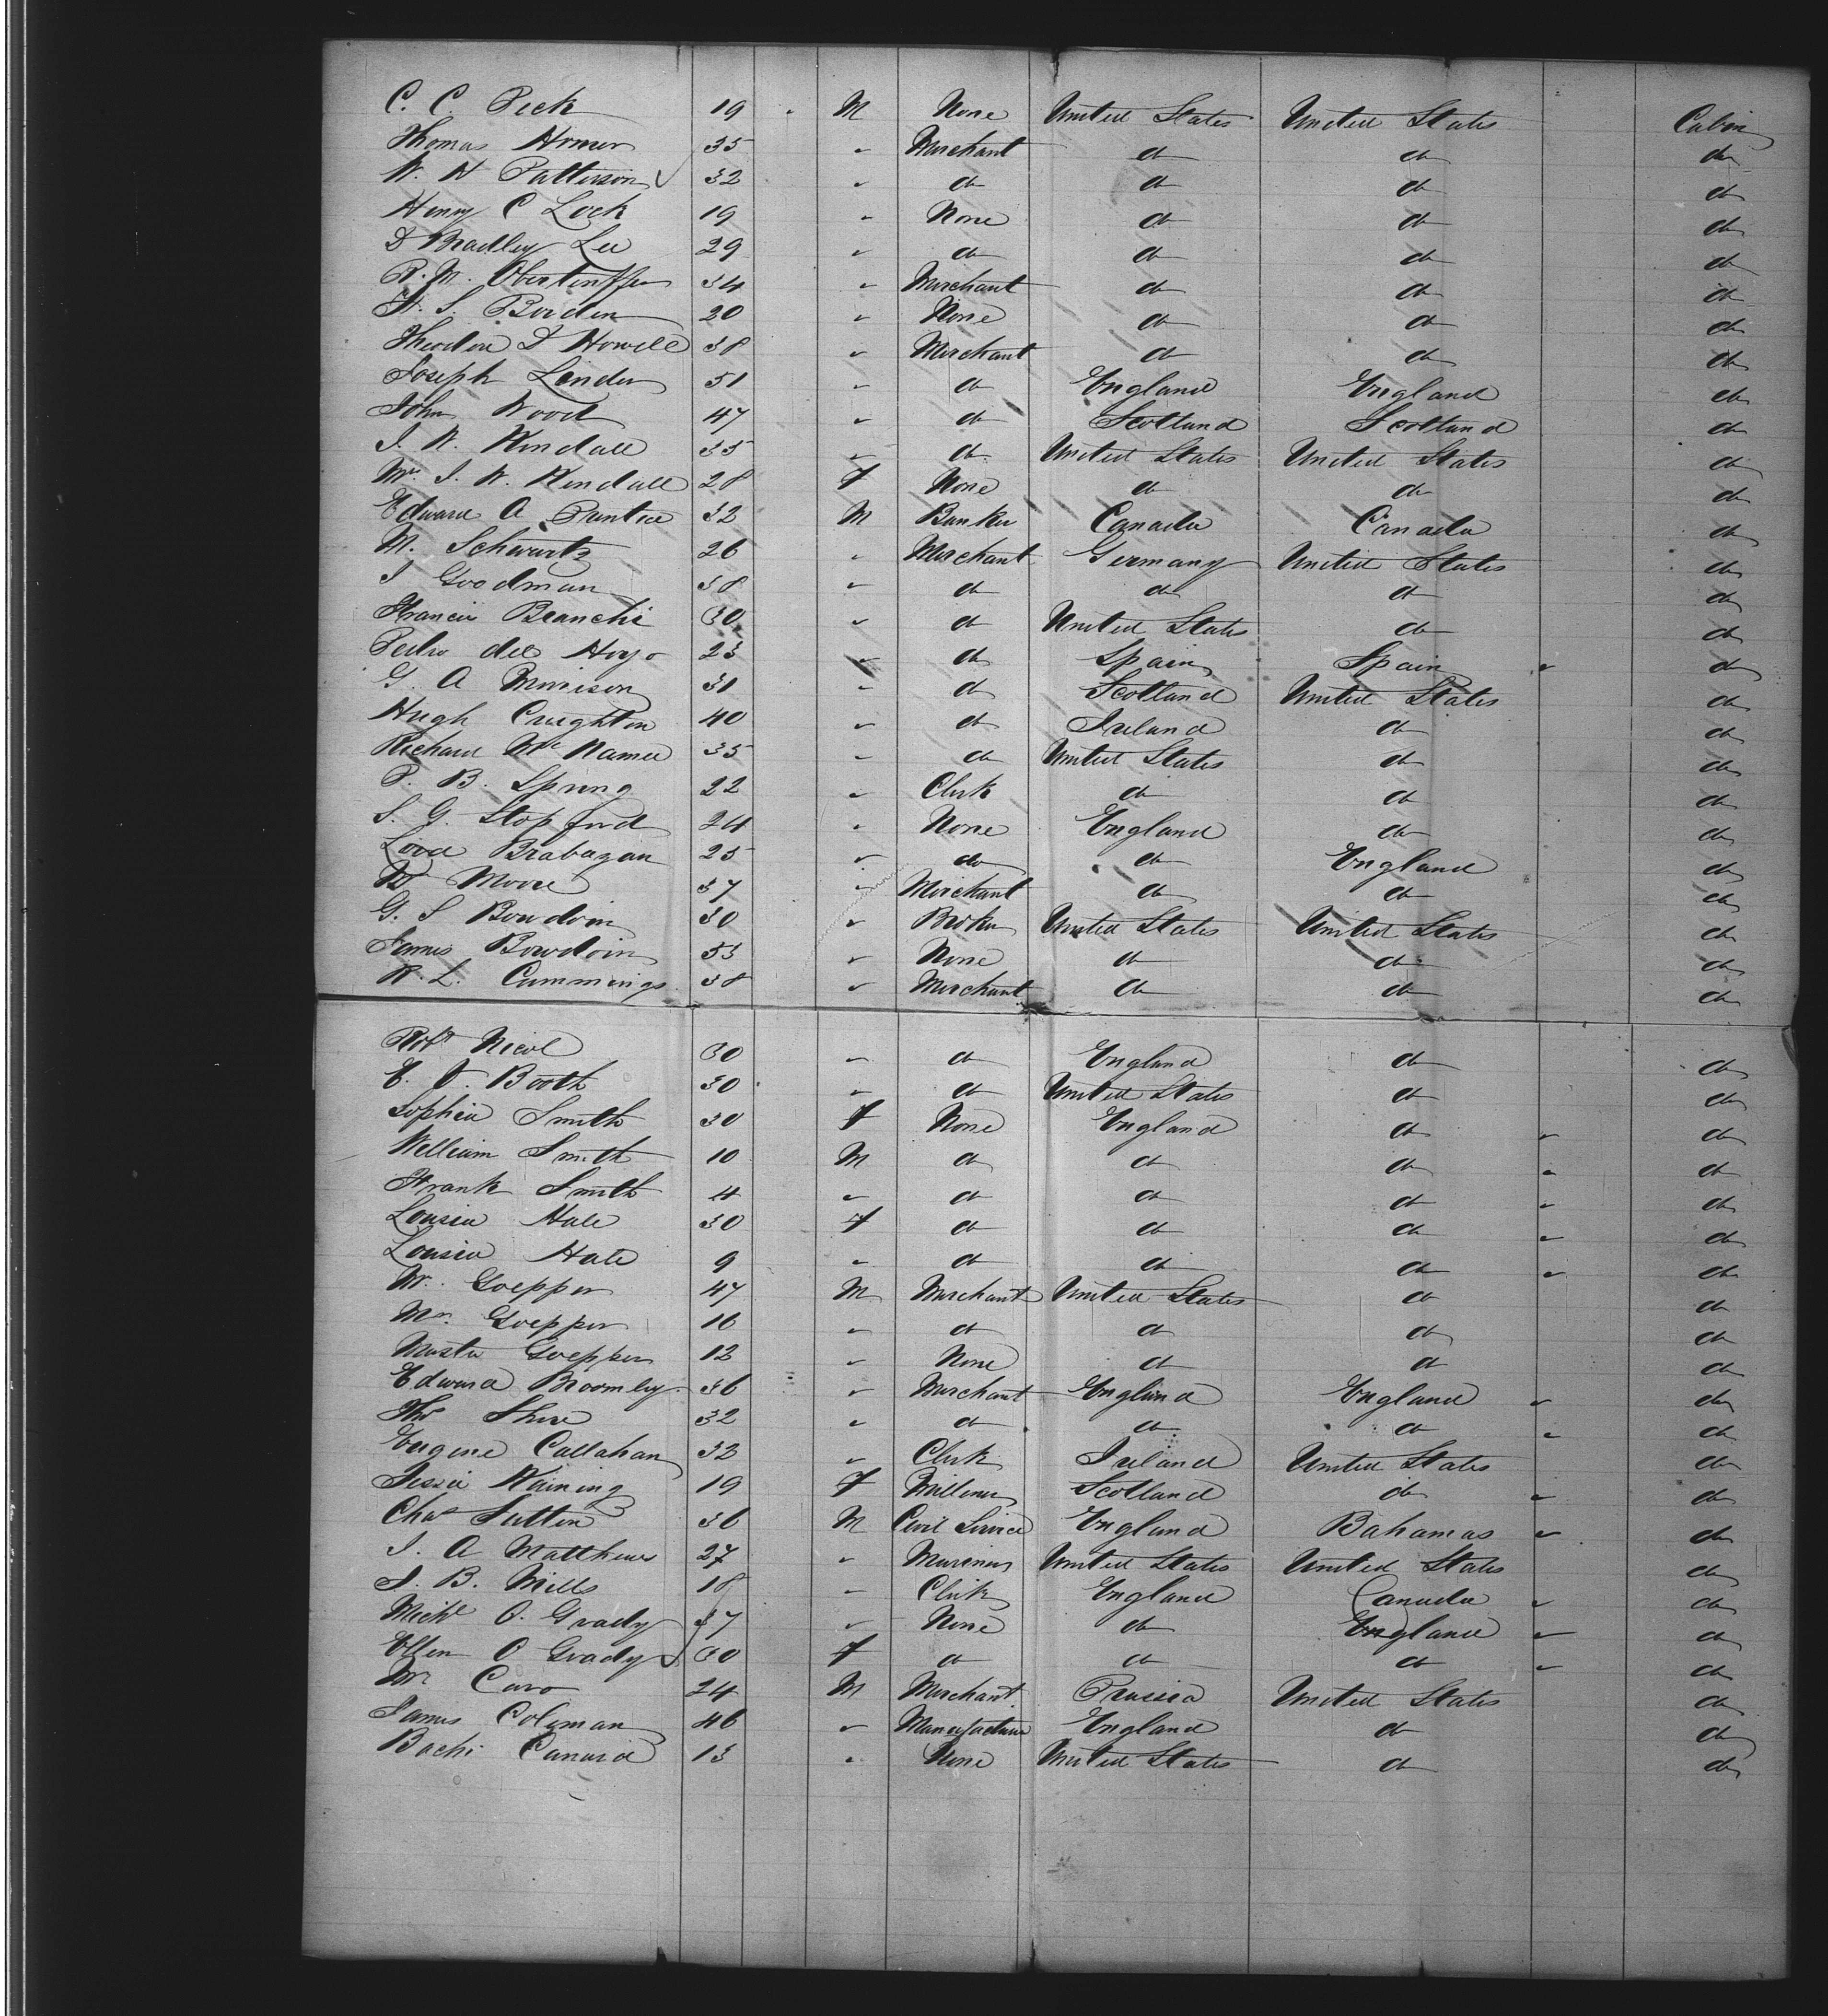 C. C. Peck 19 " M None United States United States Cabin
Thomas Homer 35 " Merchant do do do
W. H Patterson 32 " do do do do
Henry C Lock 19 " None do do do
D Bradley Lee 29 " do do do do
P. M. 34 " Merchant do do do
H. S. Borden 20 " None do do do
Theodore D Howell 38 " Merchant do do do
Joseph Linder 51 " do England England do
John Wood 47 " do Scotland Scotland do
J. W. Kendall 35 " do United States United States do
Mrs J. W. Kendall 28 F None do do do
Edward A Prentice 32 M Banker Canada Canada do
M. Schwartz 26 " Merchant Germany United States do
J Goodman 38 " do do do do
Francis Branchi 30 " do United States do do
Pedro del Hoyo 23 " do Spain Spain " do
G. A Morrison 31 " do Scotland United States do
Hugh Creighton 40 " do Ireland do do
Richard Mc Namee 35 " do United States do do
P. B. Spring 22 " Clerk do do do
S. G. Stopford 24 " None England do do
Lord Brabazan 25 " do do England do
Moore 37 " Merchant do do do
G. S Bowdoin 30 " Broker United States United States do
James Bowdoin 53 " None do do do
R. L. Cummings 38 " Merchant do do do
Robt Nicol 30 " do England do do
E. V. Booth 30 " do United States do do
Sophia Smith 30 F None England do " do
William Smith 10 M do do do " do
Frank Smith 4 " do do do " do
Lousia Hale 30 F do do do " do
Lousia Hale 9 " do do do " do
W. Goepper 47 M Merchant United States do do
Mr. Goepper 16 " do do do do
Master Goepper 12 " None do do do
Edward Bromley 36 " Merchant England England " do
Thos Shire 32 " do do do " do
Eugene Callahan 32 " Clerk Ireland United States do
Jessie Waining 19 F Milliner Scotland do " do
Chas Sutton 36 M Civil Service England Bahamas " do
J. A Matthews 27 " Mariner United States United States do
J. B. Mills 18 " Clerk England Canada " do
Michl O. Grady 37 " None do England " do
Ellen O Grady 30 F do do do " do
Mr Caro 24 M Merchant Prussia United States do
James Coleman 46 " Manufacturer England do do
Bache Cunard 13 " None United States do do